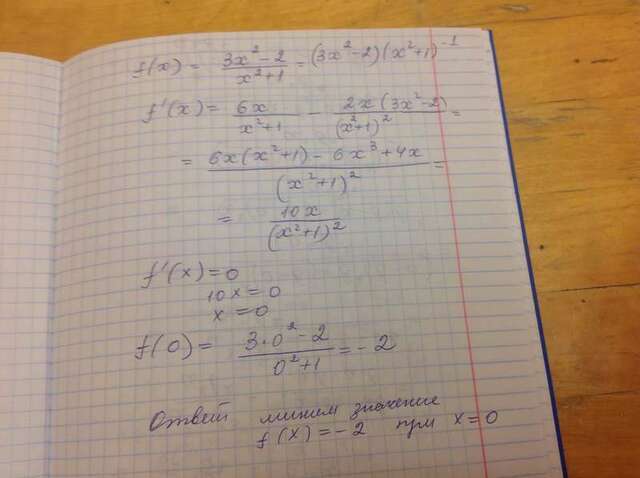 f(x) = (3x² - 2)/(x² + 1) = (3x² - 2)(x² + 1)⁻¹
f'(x) = 6x/(x² + 1) - 2x(3x² - 2)/(x² + 1)² =
= (6x(x² + 1) - 6x³ + 4x)/(x² + 1)² =
= 10x/(x² + 1)²
f'(x) = 0
10x = 0
x = 0
f(0) = (3·0² - 2)/(0² + 1) = -2
Ответ значение
f(x) = -2 при x = 0